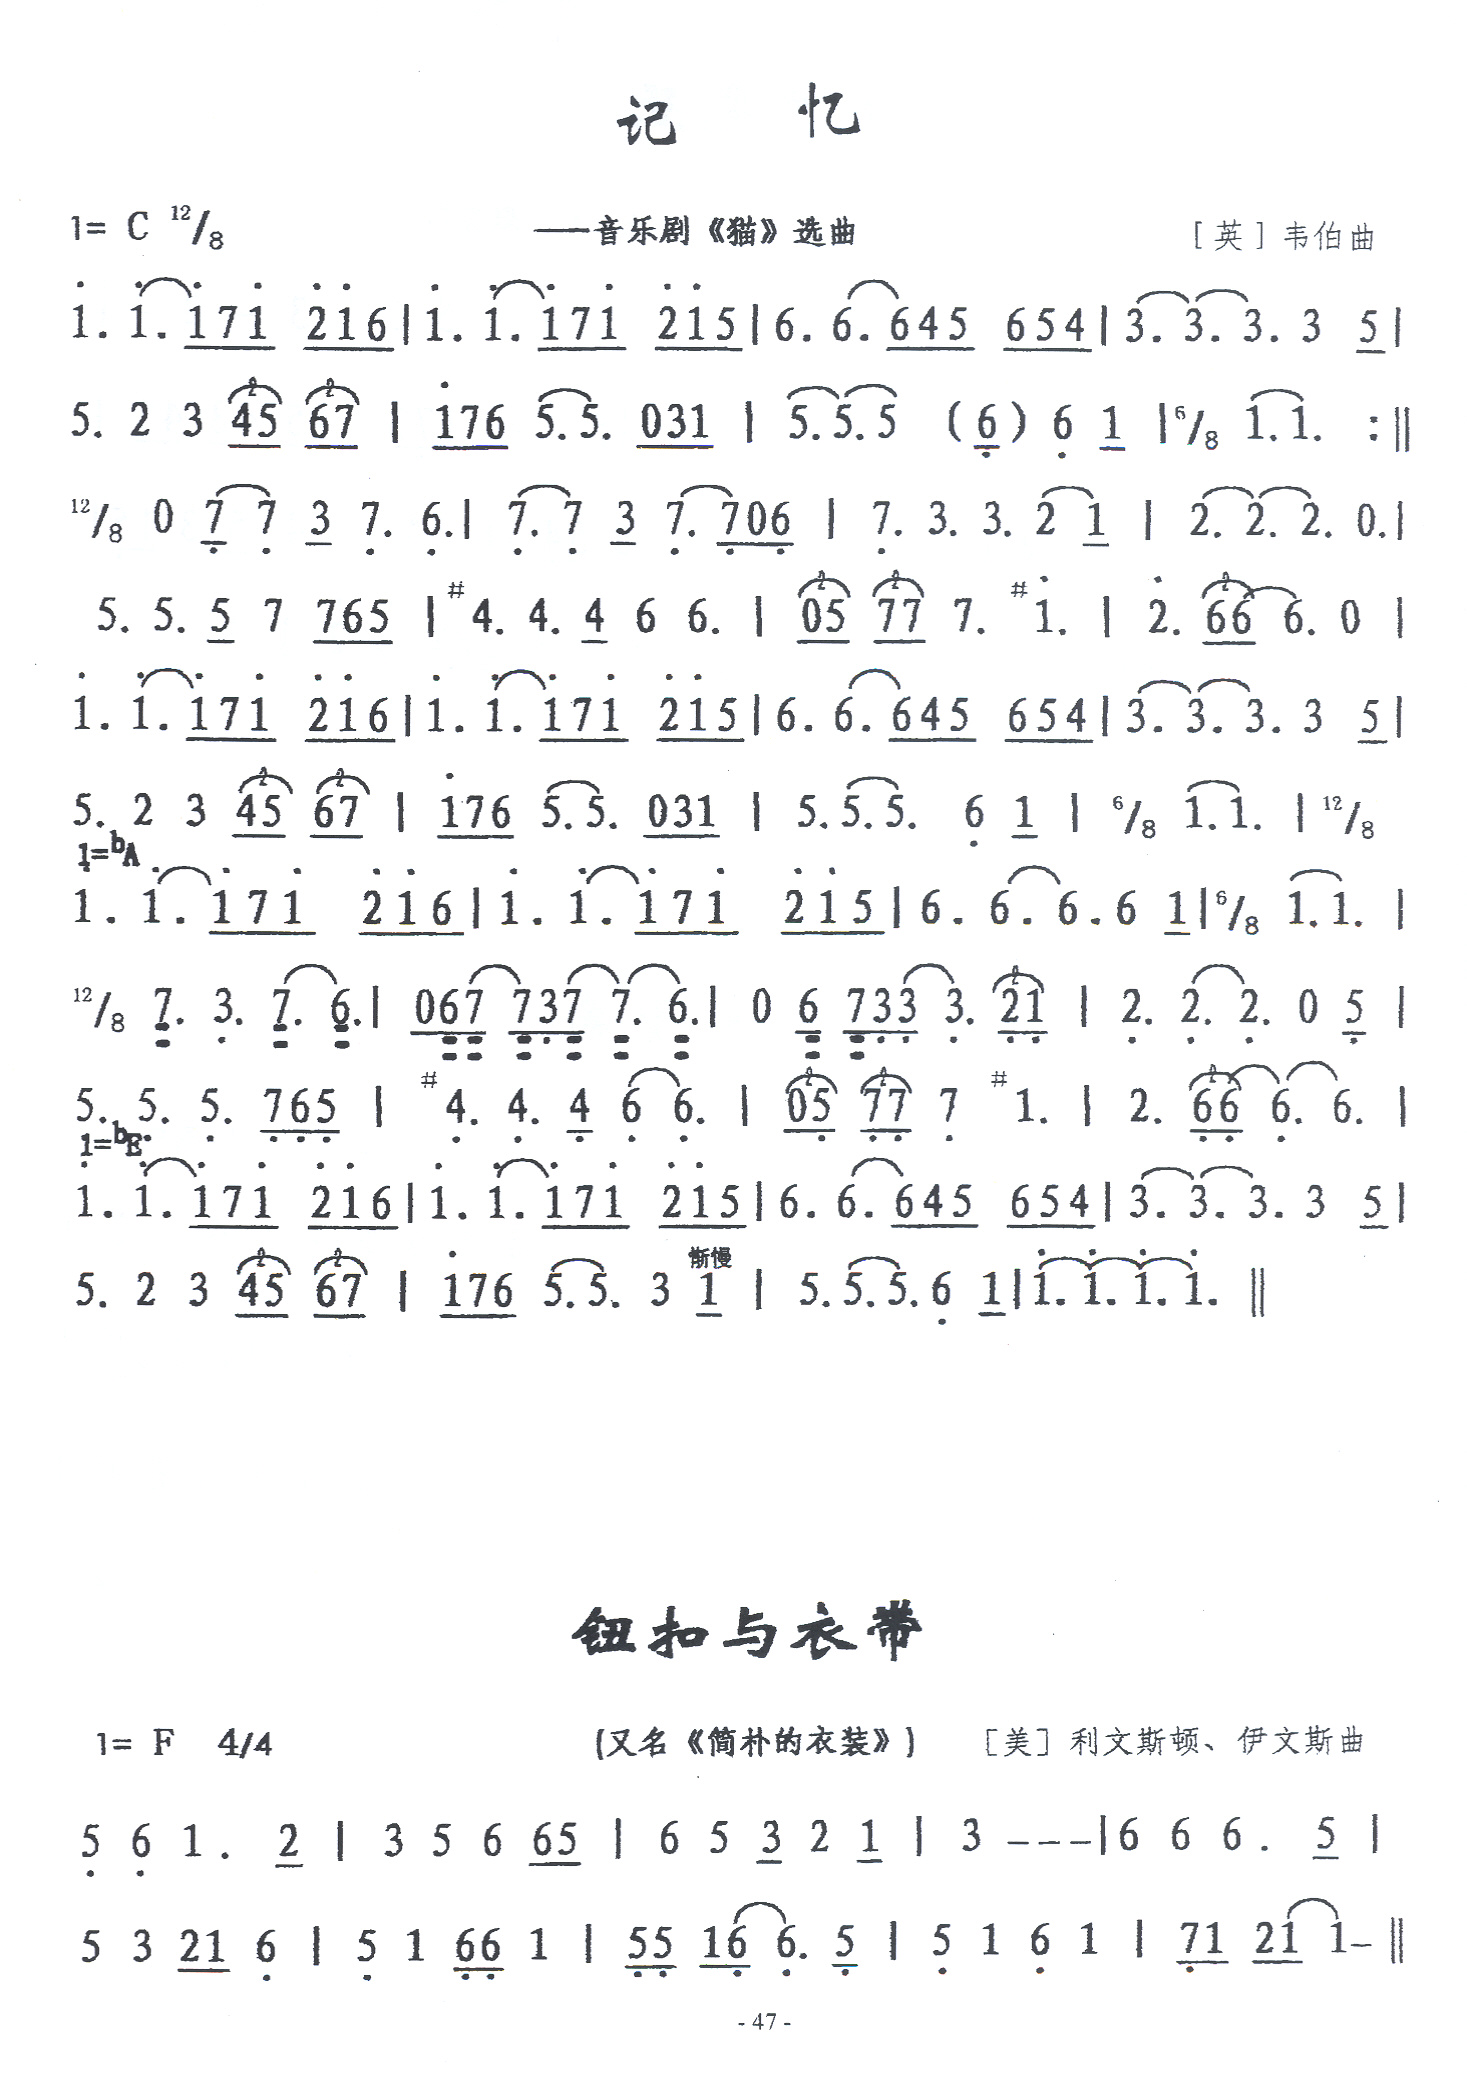 记 忆
1= C 12/8 ——音乐剧《猫》选曲 [英] 韦伯曲
1. 1. 171 216 | 1. 1. 171 215 | 6. 6. 645 654 | 3. 3. 3. 3 5 |
5. 2 3 45 67 | 176 5. 5. 031 | 5. 5. 5 (6) 6 1 | 6/8 1. 1. :‖
12/8 0 7 7 3 7. 6. | 7. 7 3 7. 706 | 7. 3. 3. 2 1 | 2. 2. 2. 0. |
5. 5. 5 7 765 | #4. 4. 4 6 6. | 05 77 7. #1. | 2. 66 6. 0 |
1. 1. 171 216 | 1. 1. 171 215 | 6. 6. 645 654 | 3. 3. 3. 3 5 |
5. 2 3 45 67 | 176 5. 5. 031 | 5. 5. 5. 6 1 | 6/8 1. 1. | 12/8
1=bA
1. 1. 171 216 | 1. 1. 171 215 | 6. 6. 6. 6 1 | 6/8 1. 1. |
12/8 7. 3. 7. 6. | 067 737 7. 6. | 0 6 733 3. 21 | 2. 2. 2. 0 5 |
5. 5. 5. 765 | #4. 4. 4 6 6. | 05 77 7 #1. | 2. 66 6. 6. |
1=bE
1. 1. 171 216 | 1. 1. 171 215 | 6. 6. 645 654 | 3. 3. 3. 3 5 |
渐慢
5. 2 3 45 67 | 176 5. 5. 3 1 | 5. 5. 5. 6 1 | 1. 1. 1. 1. ‖
钮扣与衣带
1= F 4/4 (又名《简朴的衣装》) [美] 利文斯顿、伊文斯曲
5 6 1. 2 | 3 5 6 65 | 6 5 3 2 1 | 3 - - - | 6 6 6. 5 |
5 3 21 6 | 5 1 66 1 | 55 16 6. 5 | 5 1 6 1 | 71 21 1- ‖
- 47 -